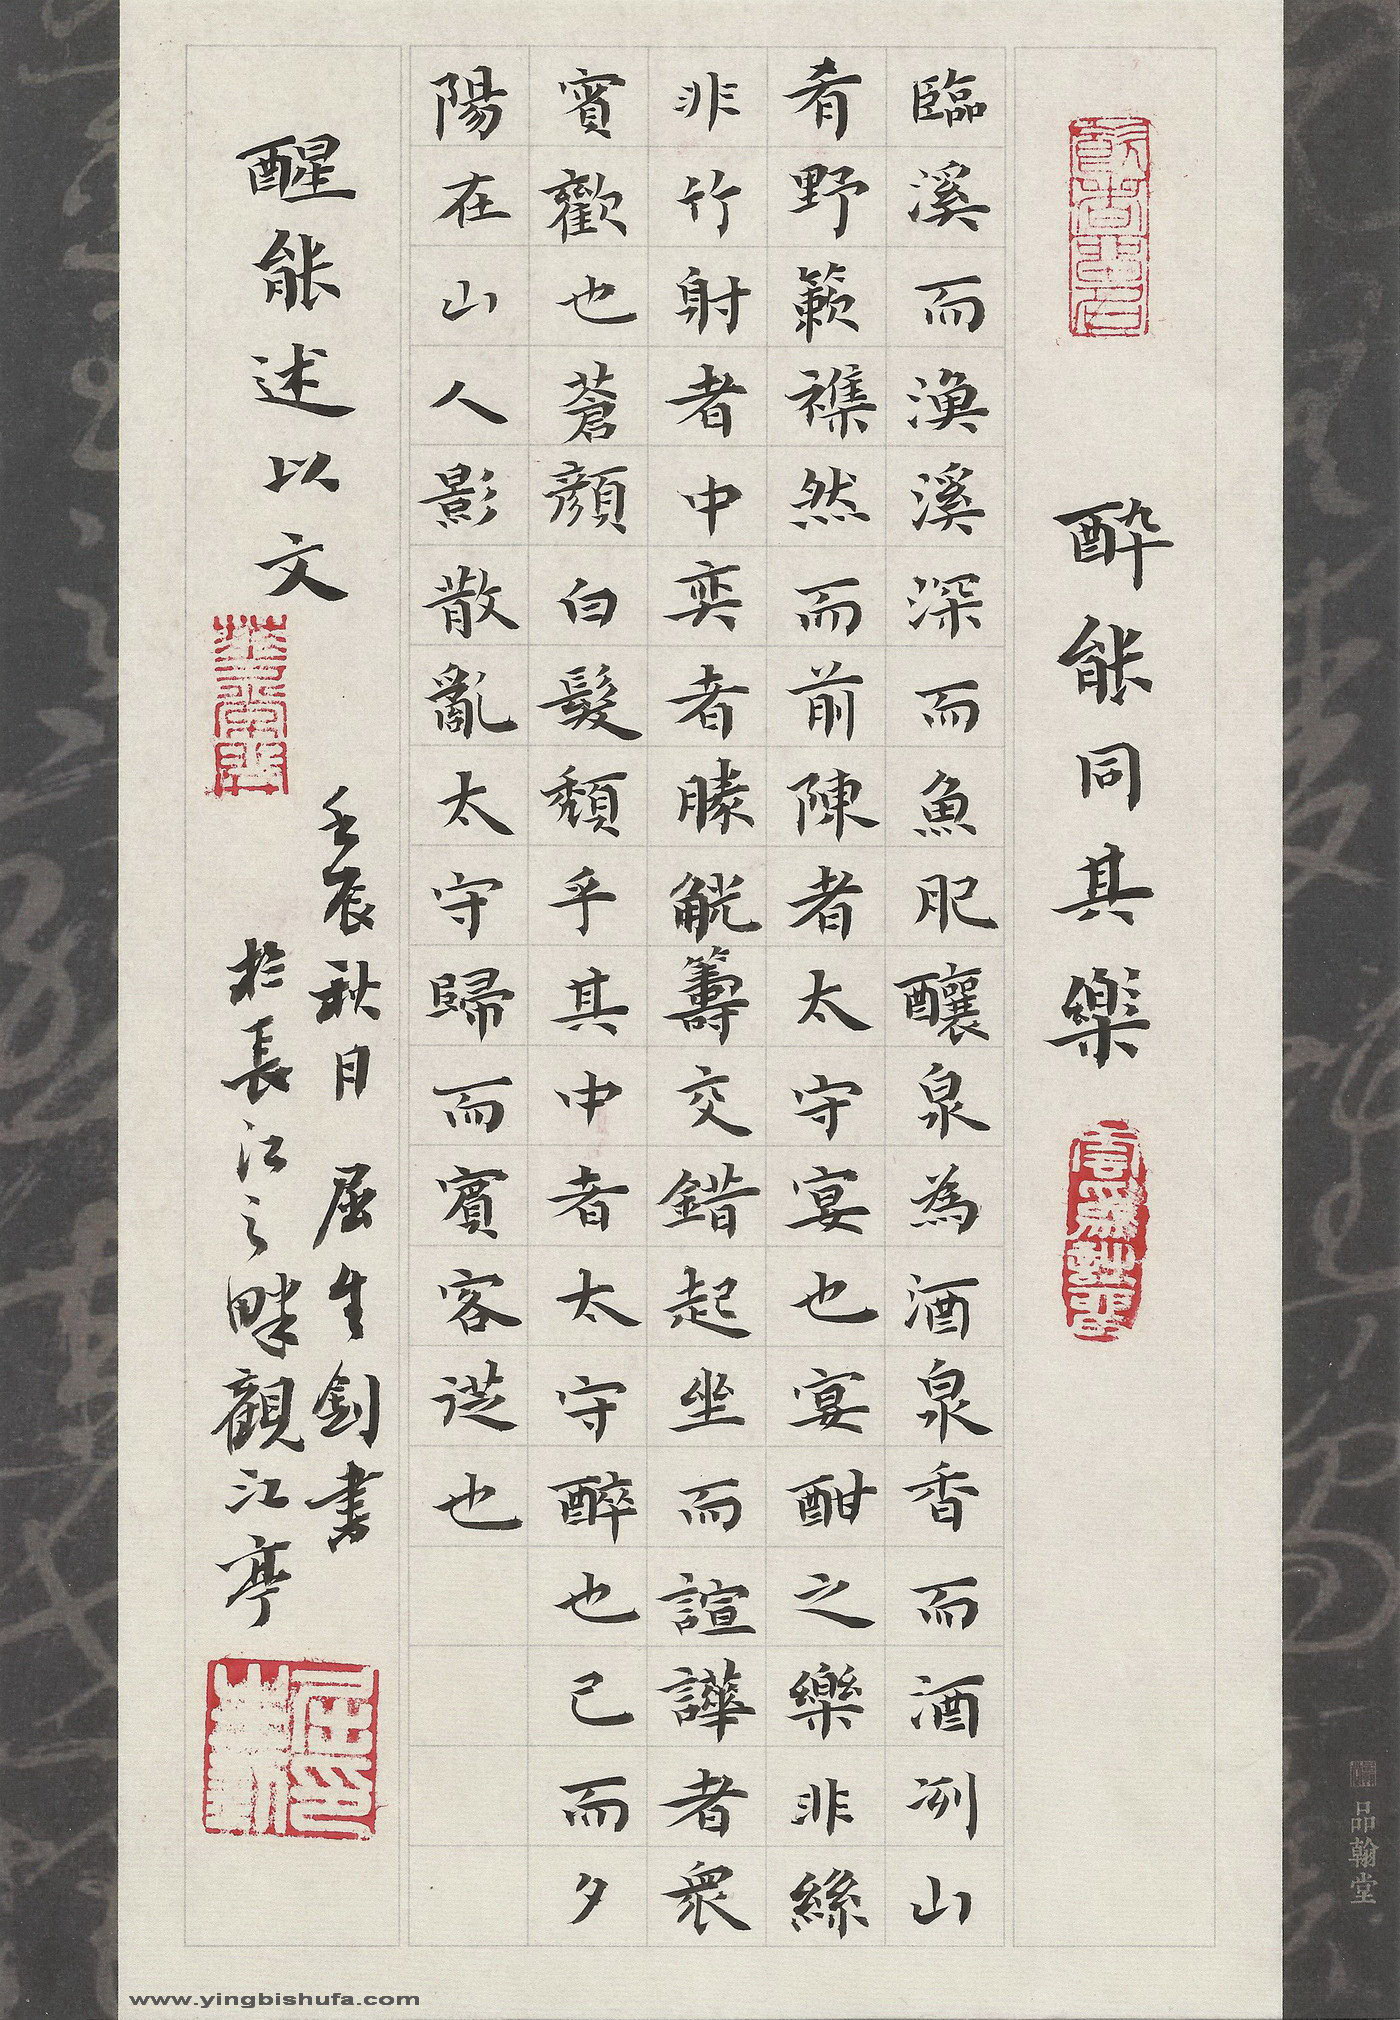 醉能同其樂
臨溪而漁溪深而魚肥釀泉為酒泉香而酒洌山
肴野蔌襍然而前陳者太守宴也宴酣之樂非絲
非竹射者中弈者勝觥籌交錯起坐而諠譁者衆
賓歡也蒼顏白髮頹乎其中者太守醉也已而夕
陽在山人影散亂太守歸而賓客從也
醒能述以文
壬辰秋月 屈生釗書
於長江之畔觀江亭
品翰堂
www.yingbishufa.com